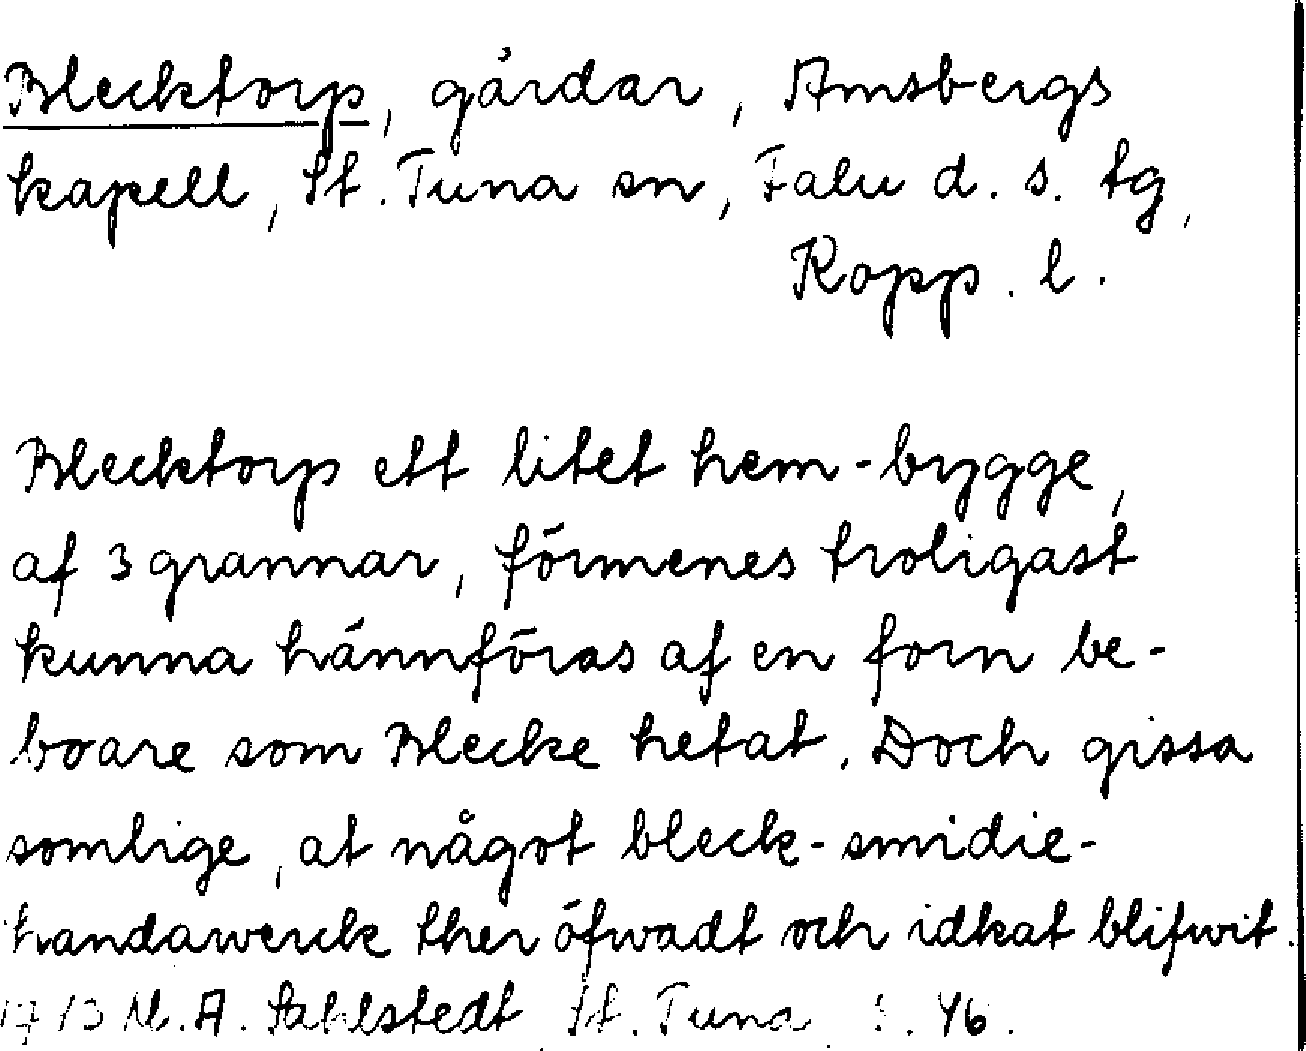 Blecktorp, gårdar, Amsbergs
kapell, St. Tuna sn, Falu d. s. tg,
Kopp. l.
Blecktorp ett litet hem-bygge,
af 3 grannar, förmenes troligast
kunna hännföras af en forn be-
boare som Blecke hetat. Doch gissa
somlige, at något bleck-smidie-
handawerck ther öfwadt och idkat blifwit.
M. A. Sahlstedt St. Tuna s. 46.